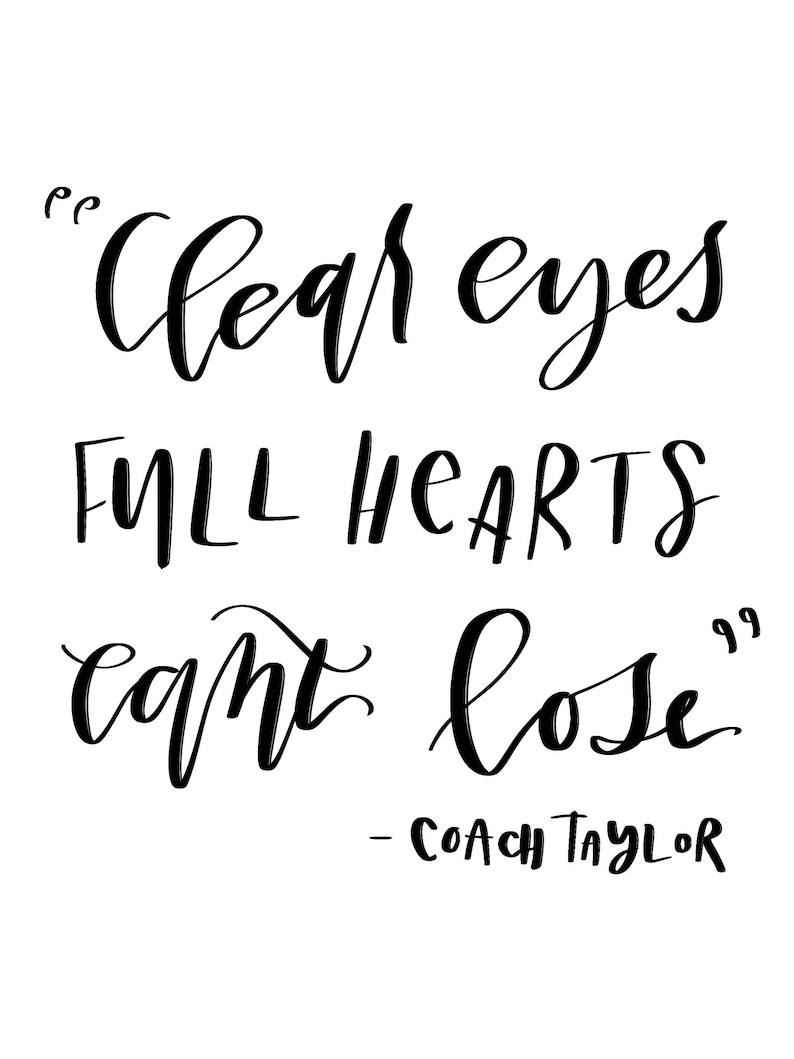 "Clear eyes
FULL HEARTS
can't lose"
- COACH TAYLOR